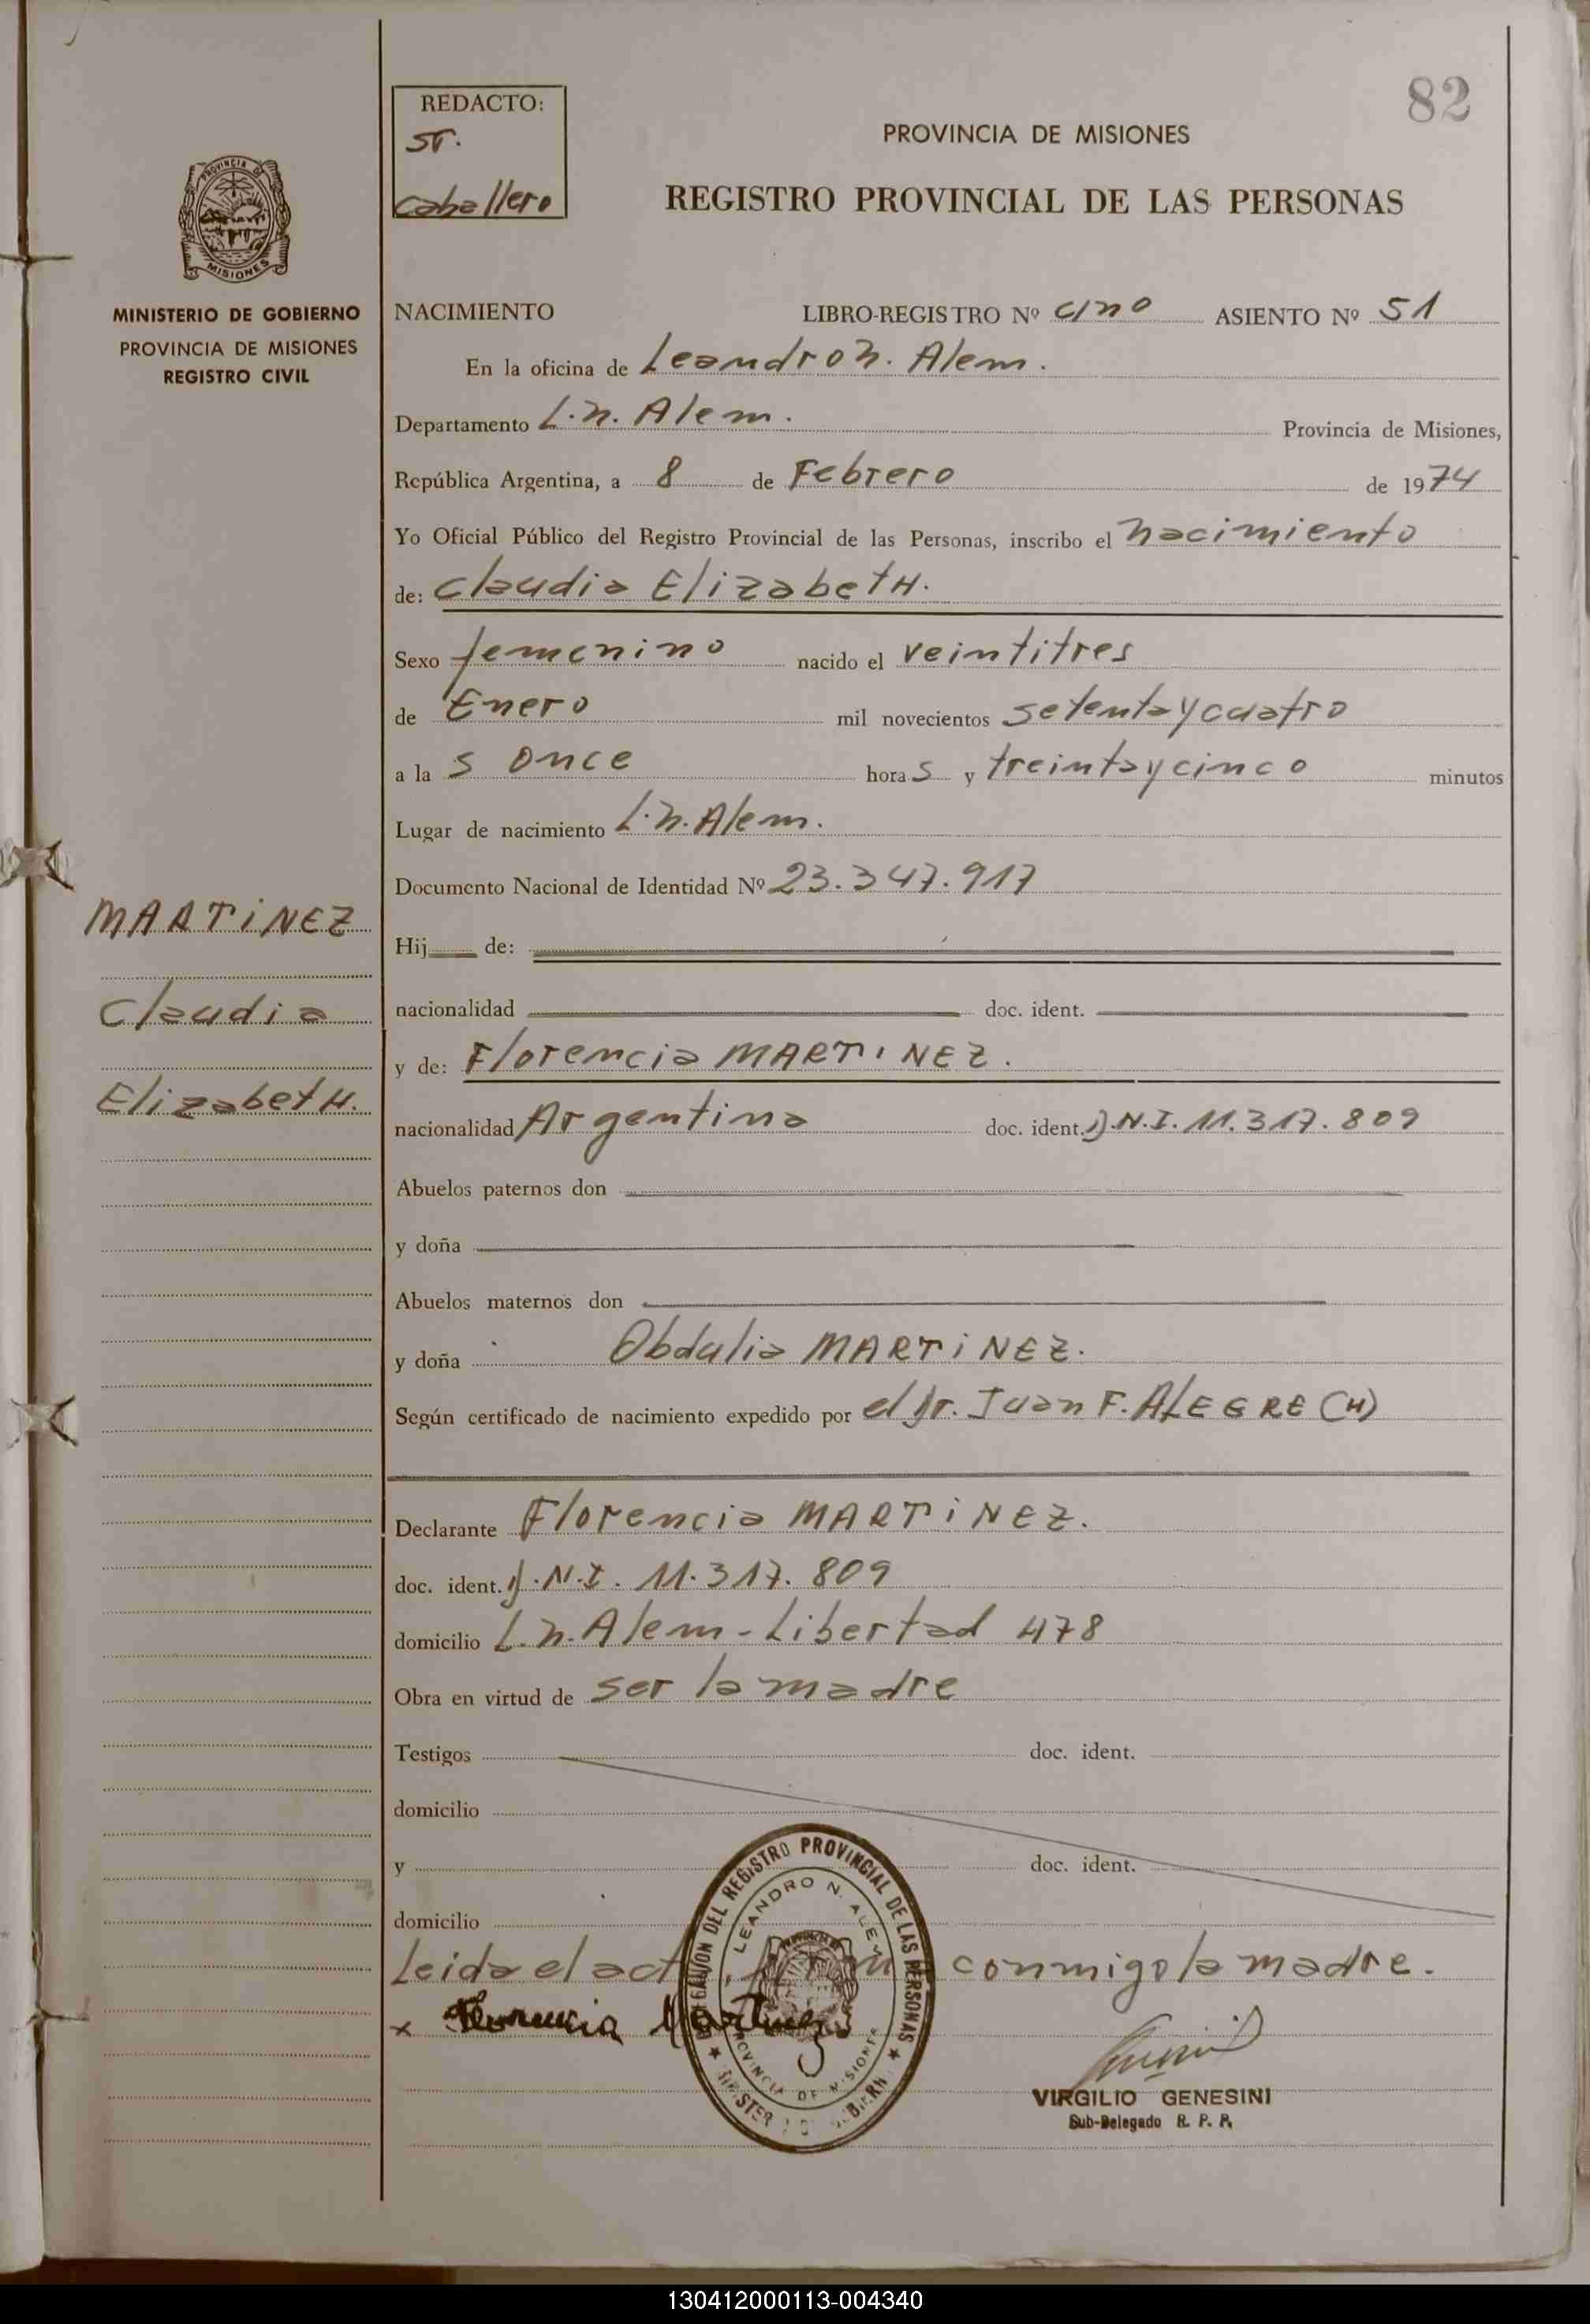 82
REDACTO:
Sr.
Caballero
PROVINCIA DE MISIONES
REGISTRO PROVINCIAL DE LAS PERSONAS
PROVINCIA DE
MISIONES
MINISTERIO DE GOBIERNO
PROVINCIA DE MISIONES
REGISTRO CIVIL
NACIMIENTO LIBRO-REGISTRO Nº uno ASIENTO Nº 51
En la oficina de Leandro N. Alem.
Departamento L.N. Alem. Provincia de Misiones,
República Argentina, a 8 de Febrero de 1974
Yo Oficial Público del Registro Provincial de las Personas, inscribo el nacimiento
de: Claudia Elizabeth.
Sexo femenino nacido el veintitres
de Enero mil novecientos setenta y cuatro
a la s once hora s y treinta y cinco minutos
Lugar de nacimiento L.N. Alem.
Documento Nacional de Identidad Nº 23.347.917
MARTiNEZ
Claudia
Elizabeth.
Hij de:
nacionalidad doc. ident.
y de: Florencia MARTiNEZ.
nacionalidad Argentina doc. ident. D.N.I. 11.317.809
Abuelos paternos don
y doña
Abuelos maternos don
y doña Obdulia MARTiNEZ.
Según certificado de nacimiento expedido por el Dr. Juan F. ALEGRE (H)
Declarante Florencia MARTiNEZ.
doc. ident. D.N.I. 11.317.809
domicilio L.N. Alem - Libertad 478
Obra en virtud de ser la madre
Testigos doc. ident.
domicilio
y doc. ident.
domicilio
Leida el acta, conmigo la madre.
x Florencia Martinez
DEL REGISTRO PROVINCIAL DE LAS PERSONAS
LEANDRO N. ALEM
PROVINCIA DE MISIONES
VIRGILIO GENESINI
Sub-Delegado R. P. P.
130412000113-004340